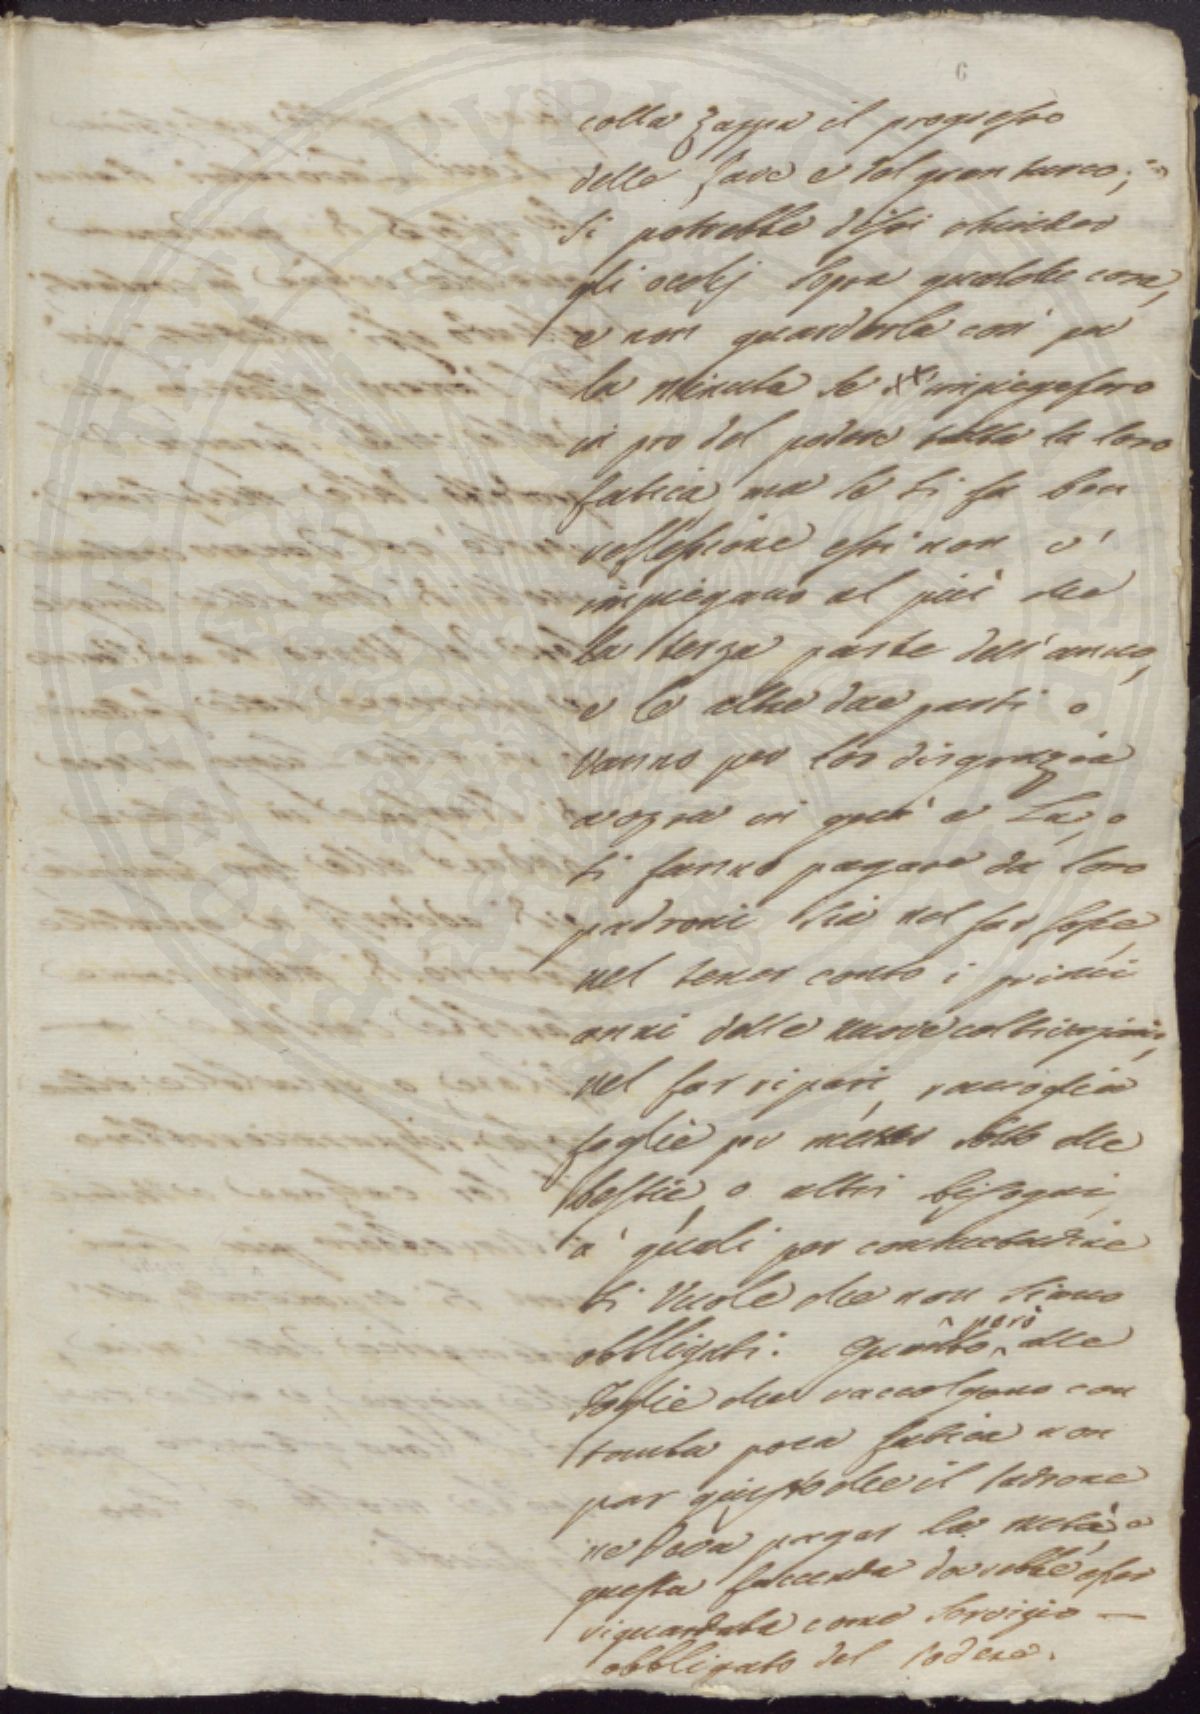 6
colla zappa il progresso
delle fave e del gran turco;
si potrebbe di fri chiuder
gli occhj sopra qualche cosa,
e non guardarla così per
la minuta se impiegassero
in pro del podere tutta la loro
fatica, ma se si fa ben
reflessione essi non v'
impiegano al più che
la terza parte dell'anno,
e le altre due parti o
vanno per lor disgrazia
a opra in quà e là, o
si fanno pagare da loro
padroni sia nel far fosse,
nel tener conto i primi
anni delle nuove coltivazioni,
nel far ripari, raccoglier
foglie per metter sotto alle
bestie, o altri bisogni,
a' quali per consuetudine
si vuole che non siano
obbligati. Quanto però alle
Foglie che raccolgono con
tanta poca fatica non
par giusto che il Padrone
ne deva pagar la metà, e
questa faccenda dovrebbe esser
riguardata come servizio —
obbligato del Podere.